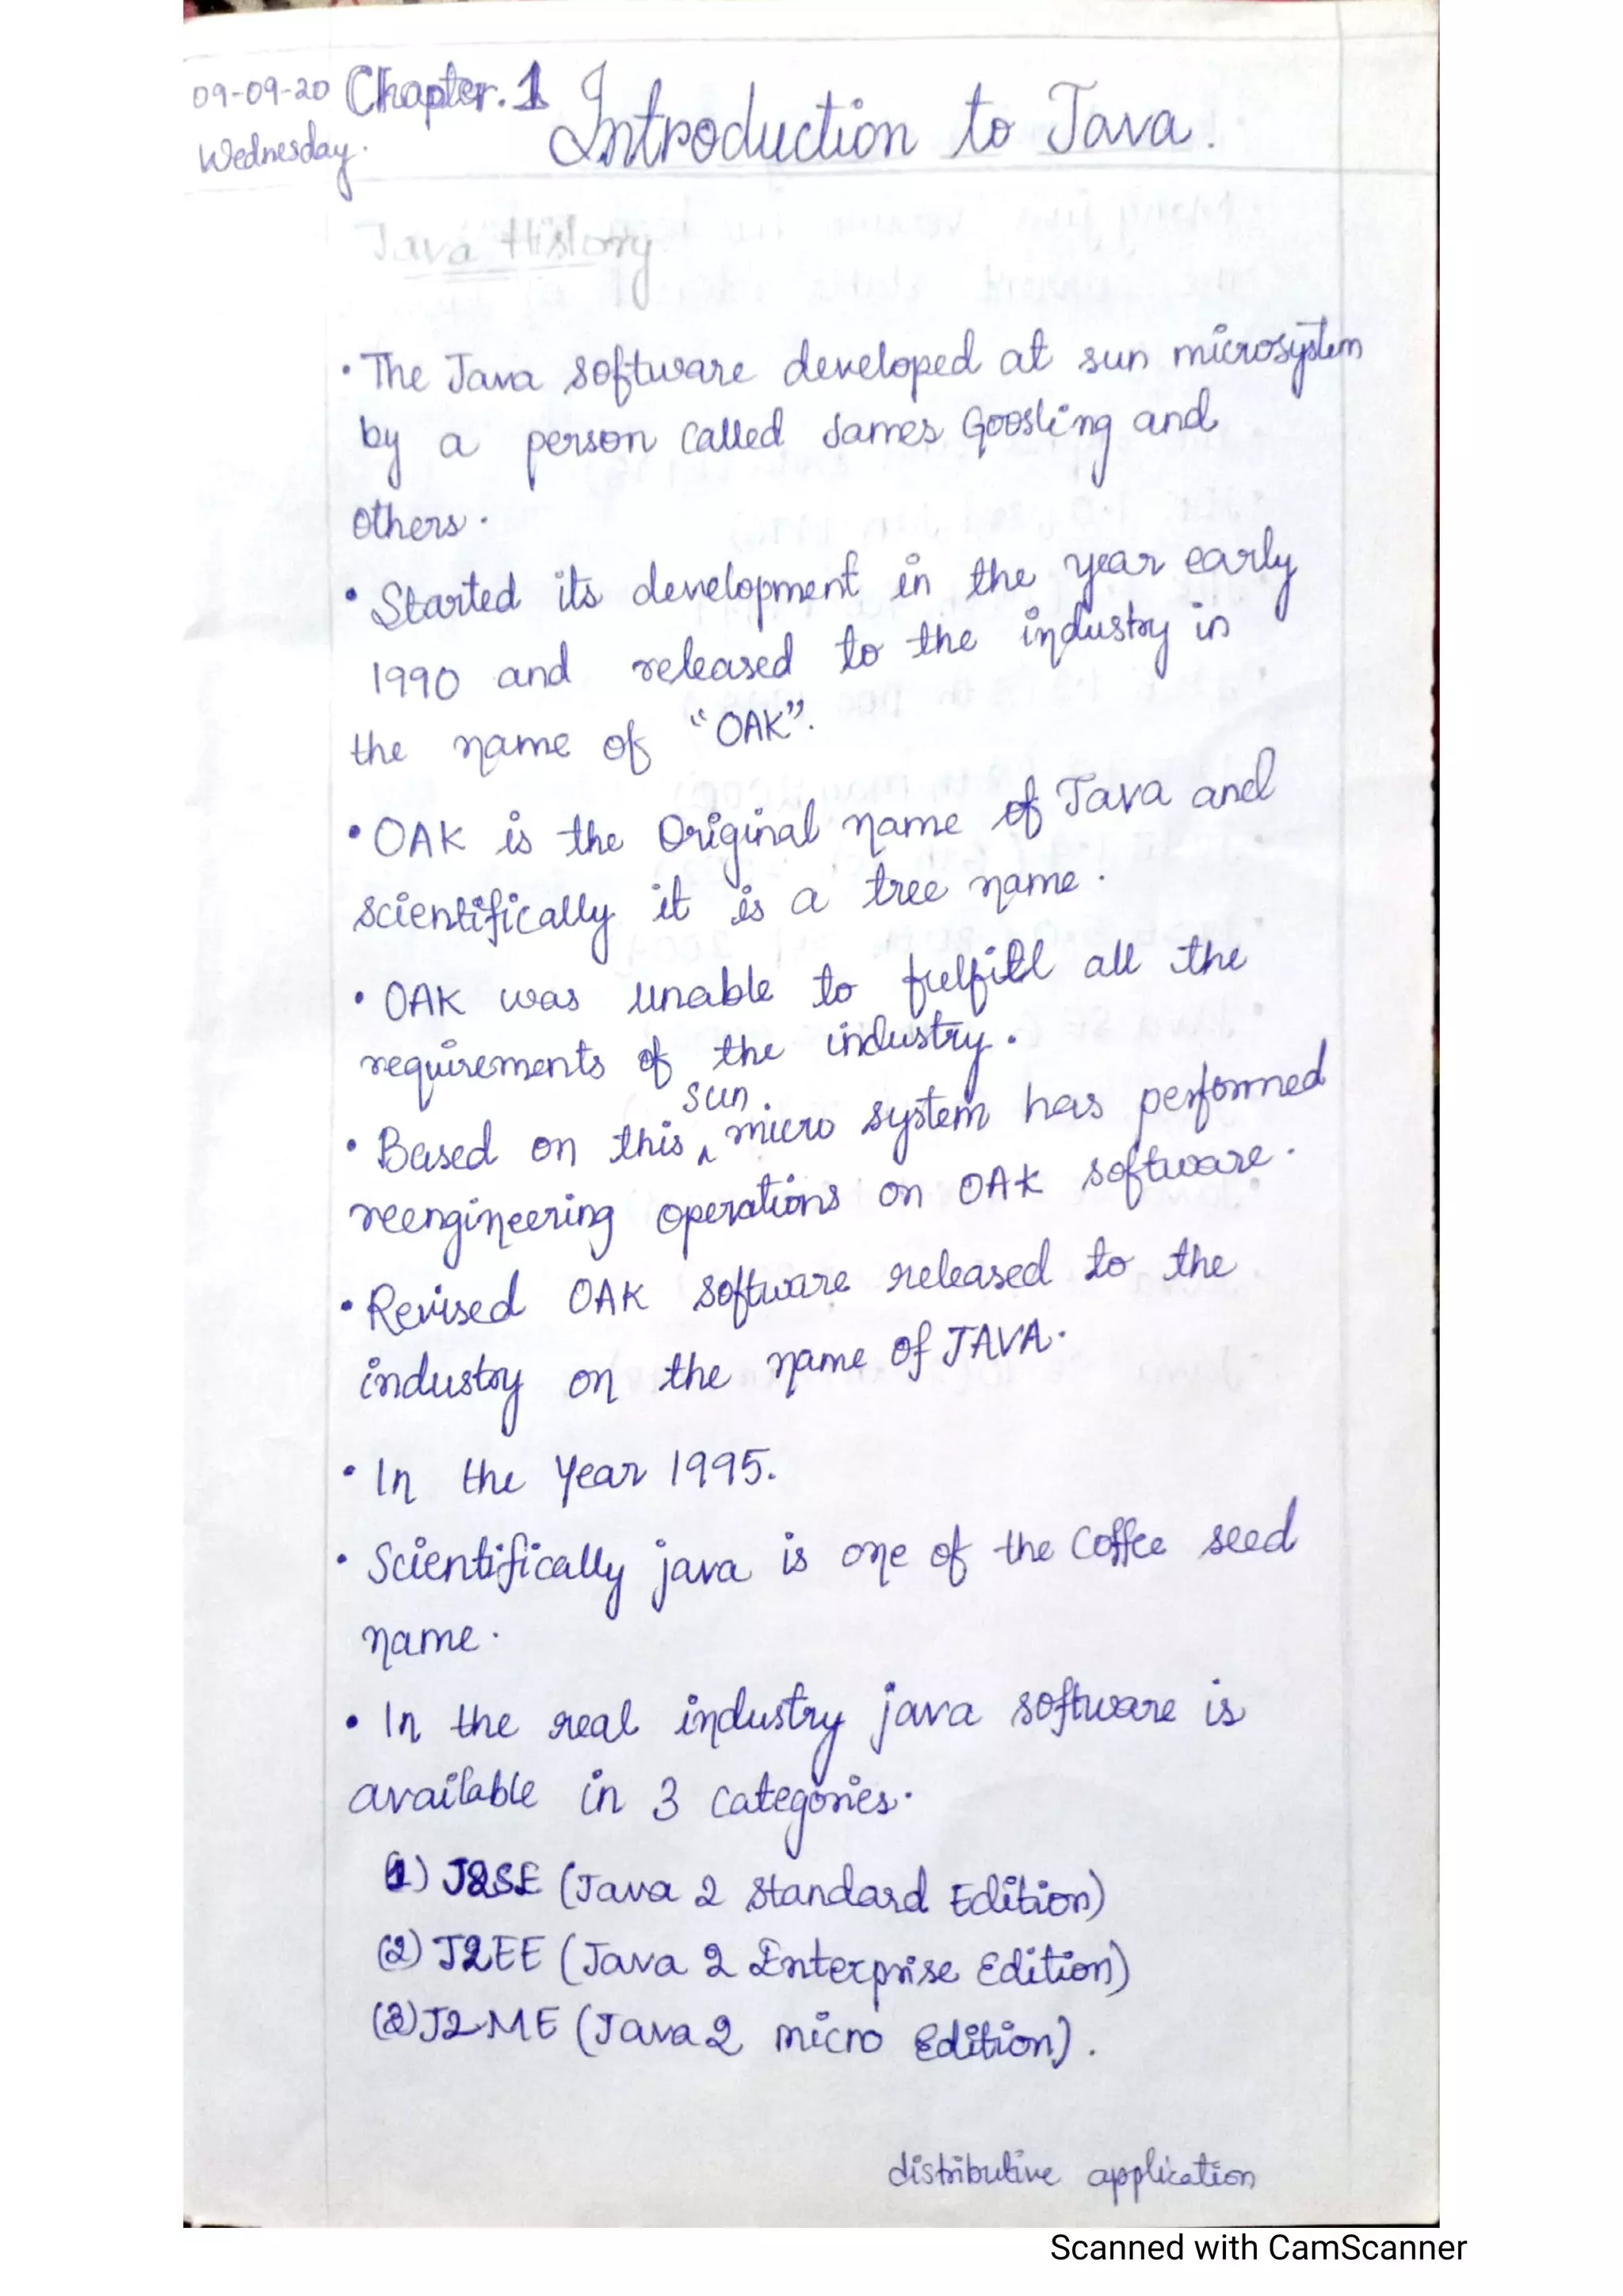 09-09-20 Chapter.1 Introduction to Java.
Wednesday.
Java History
• The Java software developed at sun microsystem
by a person called James Goosling and
others.
• Started its development in the year early
1990 and released to the industry in
the name of "OAK".
• OAK is the Original name of Java and
scientifically it is a tree name.
• OAK was unable to fulfill all the
requirements of the industry.
sun
• Based on this ^ micro system has performed
reengineering operations on OAK software.
• Revised OAK software released to the
industry on the name of JAVA.
• In the Year 1995.
• Scientifically java is one of the Coffee seed
name.
• In the real industry java software is
available in 3 categories.
(1) J2SE (Java 2 Standard Edition)
(2) J2EE (Java 2 Enterprise Edition)
(3) J2ME (Java 2 micro Edition).
distributive application
Scanned with CamScanner